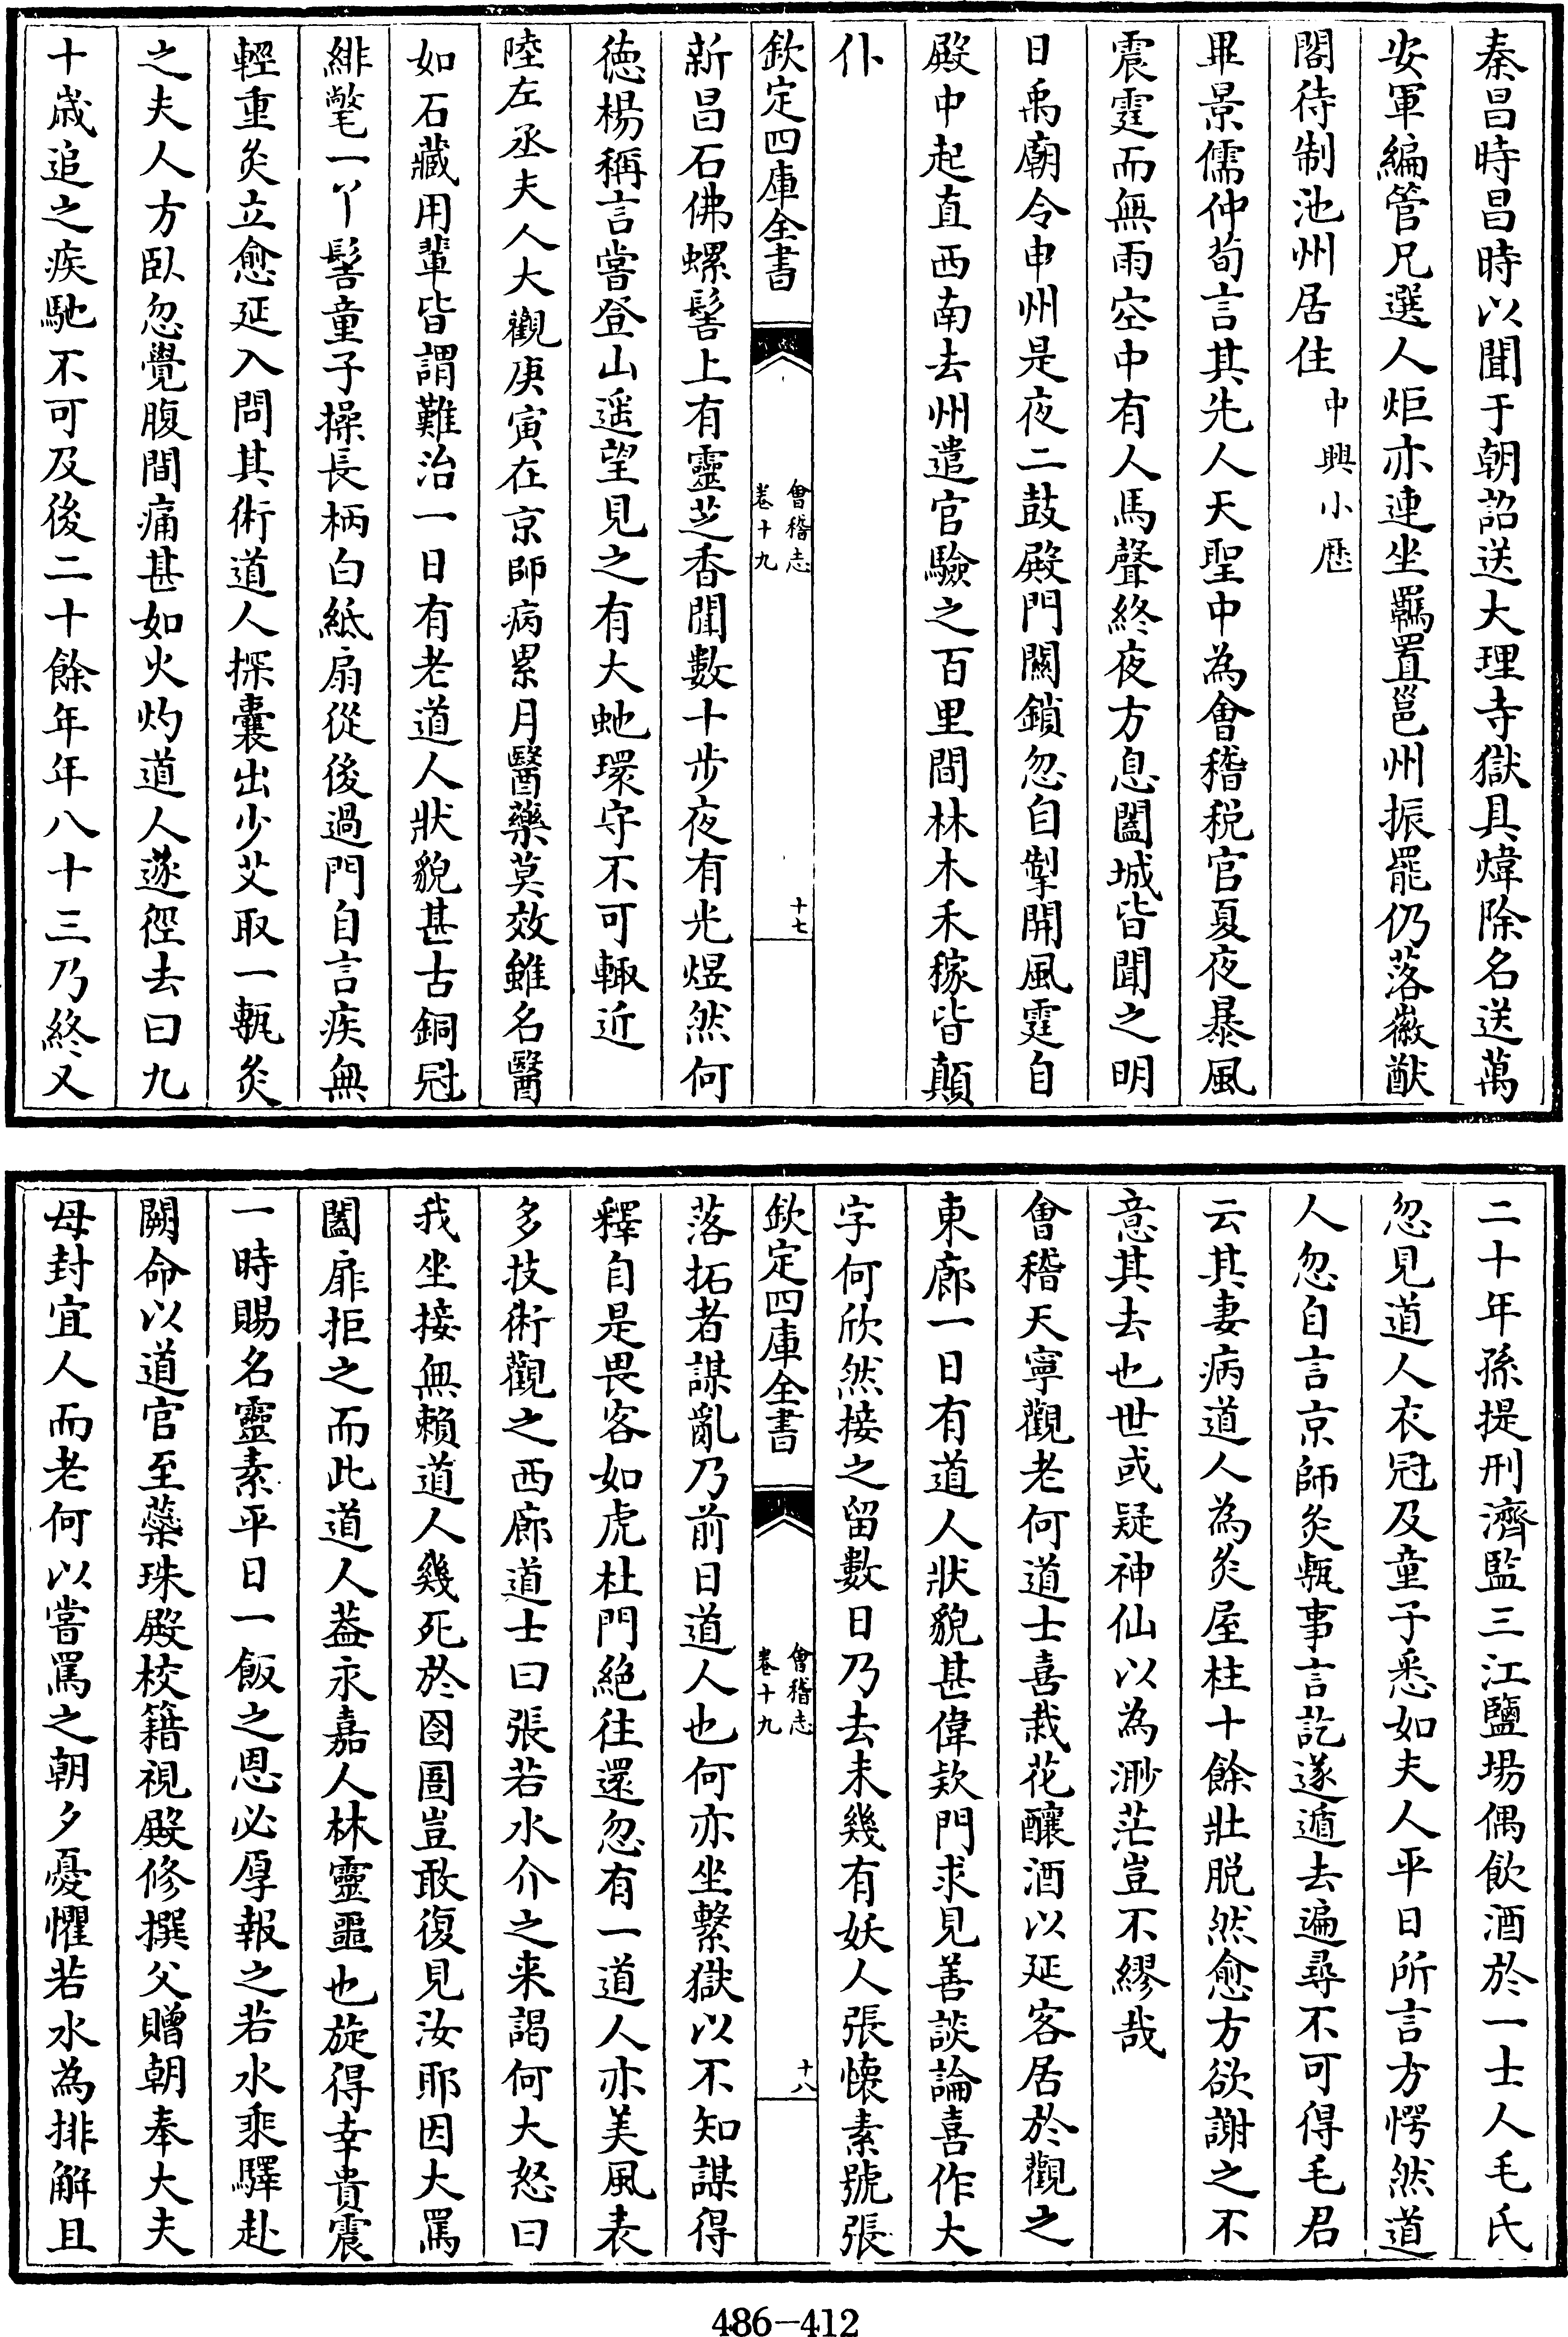 秦昌時昌時以聞于朝詔送大理寺獄具煒除名送萬
安軍編管兄選人炬亦連坐羈置邕州振罷仍落徽猷
閣待制池州居住中興小歴
畢景儒仲荀言其先人天聖中為㑹稽税官夏夜暴風
震霆而無雨空中有人馬聲終夜方息闔城皆聞之明
日禹廟令申州是夜二鼓殿門闗鎖忽自掣開風霆自
殿中起直西南去州遣官驗之百里間林木禾稼皆顛
仆
欽定四庫全書
㑹稽志
卷十九
十七
新昌石佛螺髻上有靈芝香聞數十步夜有光煜然何
徳楊稱言嘗登山遥望見之有大虵環守不可輙近
陸左丞夫人大觀庚寅在京師病累月醫藥莫效雖名醫
如石藏用輩皆謂難治一日有老道人狀貌甚古銅冠
緋氅一丫髻童子操長柄白紙扇從後過門自言疾無
輕重灸立愈延入問其術道人探囊出少艾取一甎灸
之夫人方臥忽覺腹間痛甚如火灼道人遂徑去曰九
十歳追之疾馳不可及後二十餘年年八十三乃終又
二十年孫提刑濟監三江鹽場偶飲酒於一士人毛氏
忽見道人衣冠及童子悉如夫人平日所言方愕然道
人忽自言京師灸甎事言訖遂遁去遍尋不可得毛君
云其妻病道人為灸屋柱十餘壯脱然愈方欲謝之不
意其去也世或疑神仙以為渺茫豈不繆哉
㑹稽天寧觀老何道士喜栽花釀酒以延客居於觀之
東廊一日有道人狀貌甚偉欵門求見善談論喜作大
字何欣然接之留數日乃去未幾有妖人張懐素號張
欽定四庫全書
㑹稽志
卷十九
十八
落拓者謀亂乃前日道人也何亦坐繫獄以不知謀得
釋自是畏客如虎杜門絶往還忽有一道人亦美風表
多技術觀之西廊道士曰張若水介之来謁何大怒曰
我坐接無賴道人幾死於囹圄豈敢復見汝耶因大罵
闔扉拒之而此道人葢永嘉人林靈噩也旋得幸貴震
一時賜名靈素平日一飯之恩必厚報之若水乘驛赴
闕命以道官至蘂珠殿校籍視殿修撰父贈朝奉大夫
母封宜人而老何以嘗罵之朝夕憂懼若水為排解且
486-412